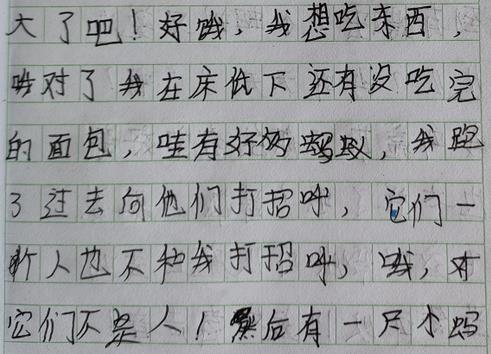 大了吧！好饿，我想吃东西，
哦对了我在床低下还有没吃完
的面包，哇有好多蚂蚁，我跑
了过去向他们打招呼，它们一
个人也不和我打招呼，哦，对
它们不是人！然后有一只小蚂